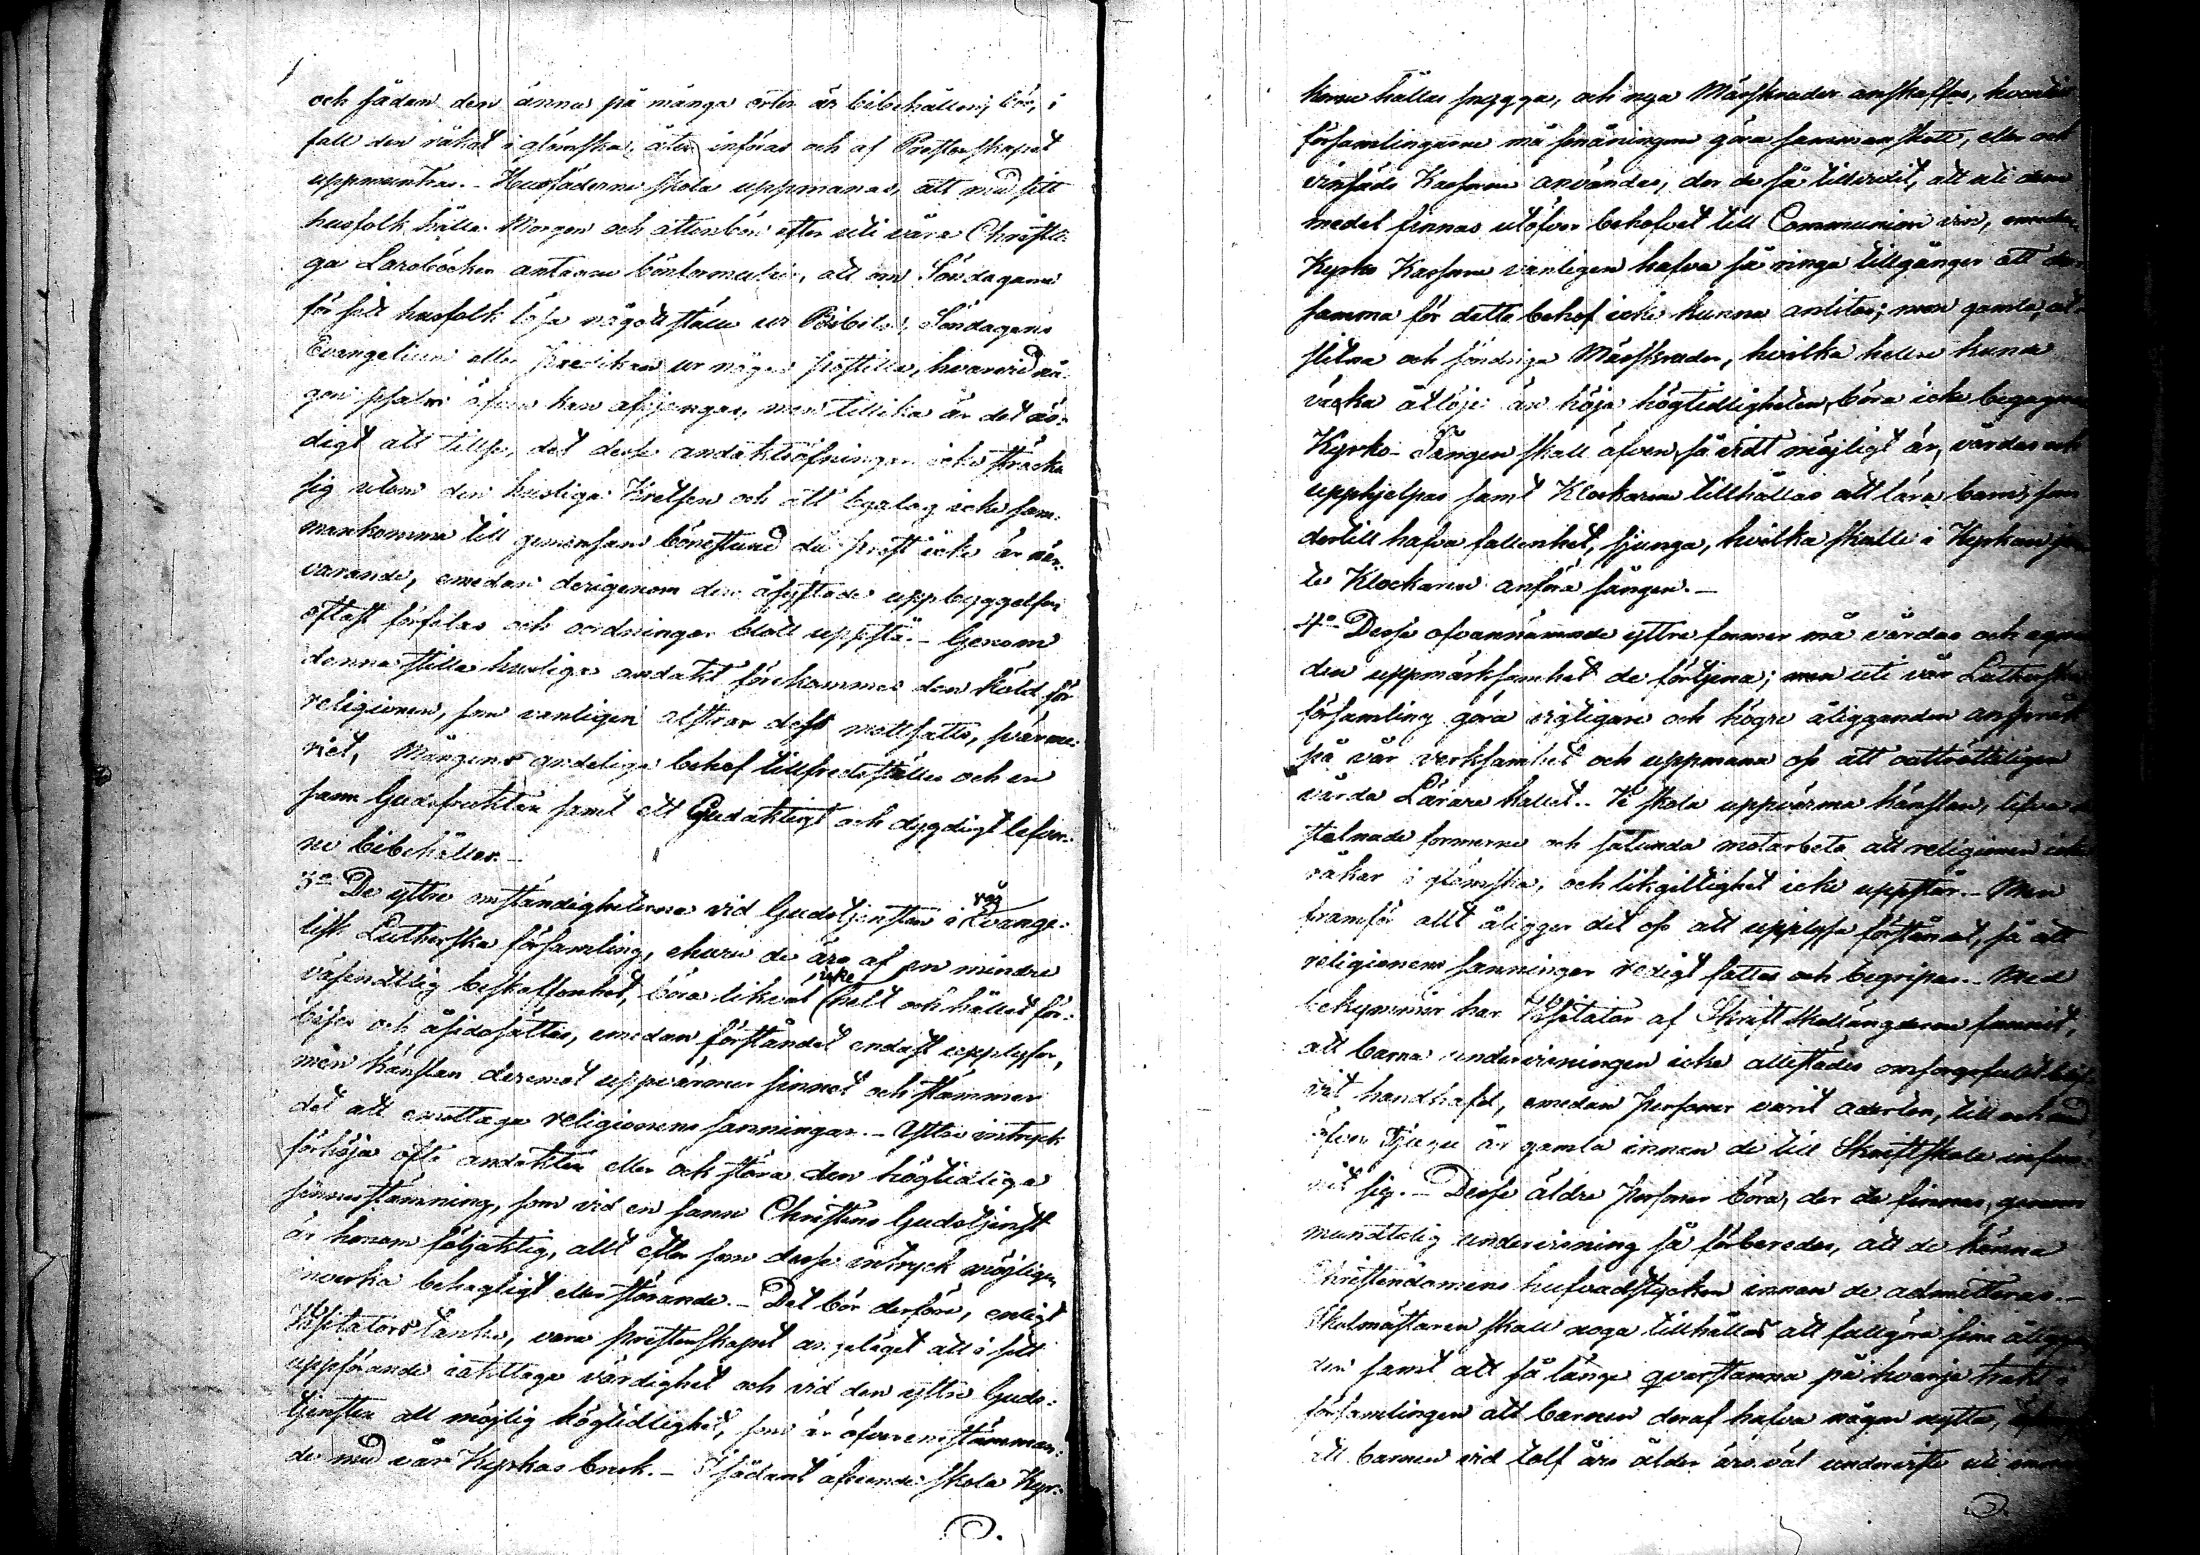 och sådan den ännu på många orter är bibehållen, bör, i
fall den råkat i glömska, åter införas och af Presterskapet
uppmuntras. - Husfäderne skola uppmanas, att med sitt
husfolk hålla Morgon och aftonbön efter uti våra Christli-
ga Läroböcker antagne bönformulär, att om Söndagarne
för sitt husfolk läsa något ställe ur Bibeln, Söndagens
Evangelium eller predikan ur någon postilla, hvarvid nå-
gon psalm äfven kan afsjungas, men tillika är det nö-
digt att tillse, det desse andaktsöfningar icke sträcka
sig utom den husliga Kretsen och att byalag icke sam-
mankomma till gemensam bönestund då prest icke är när-
varande, emedan derigenom den åsyftade uppbyggelsen
oftast förfelas och oordningar blott uppstå. - Genom
denna stilla husliga andakt förekommes den köld för
religionen, som vanligen alstrar dess mottsatts, svärme-
riet, Mångens andeliga behof tillfredsställes och en
sann Gudsfruktan samt ett Gudaktigt och dygdigt lefver-
ne bibehålles. -
3o De yttre omständigheterna vid Gudstjensten i vår Evange-
lisk Lutherska församling, ehuru de äro af en mindre
väsendtlig beskaffenhet, böra likväl icke helt och hållet för-
bises och åsidosättas, emedan förståndet endast upplyser,
men känslan deremot uppvärmer sinnet och stämmer
det att emottaga religionens sanningar. - Yttre intryck
förhöja ofta andakten eller och störa den högtidliga
sinnesstämning, som vid en sann Christens Gudstjenst
är honom följaktig, allt efter som desse intryck möjligen
inverka behagligt eller störande. - Det bör derföre, enligt
Visitators tanke, vara presterskapet angeläget att i sitt
uppförande iakttaga värdighet och vid den yttre Guds-
tjensten all möjlig högtidlighet, som är öfverensstämman-
de med vår Kyrkas bruk. - I sådant afseende skola Kyr-
korne hållas snygga, och nya Mässkruder anskaffas,
församlingarne må småningom göra sammanskott, eller och
vinsäds Kassorne användas, der de så tillräckt, att uti dem
medel finnas utöfver behofvet till Communion vin, emedan
Kyrko Kassorne vanligen hafva så ringa tillgångar att de
samma för detta behof icke kunna anlitas; men gamla, ut-
slitna och söndriga Mässkruder, hvilka hellre kunna
väcka åtlöje än höja högtidligheten, böra icke begagnas
Kyrko-Sången skall äfven, så vidt möjligt är, vårdas och
upphjelpas samt Klockarne tillhållas att lära barn, som
dertill hafva fallenhet, sjunga, hvilka skulle i Kyrkan jem-
te Klockaren anföra sången. -
4o Desse ofvannämnde yttre former må vårdas och egnas
den uppmärksamhet de förtjena; men uti vår Lutherska
församling göra vigtigare och högre åligganden anspråk
på vår verksamhet och uppmana oss att outtröttligen
vårda Lärare kallet. - Vi skola uppvärma känslan, lifva
stelnade formerne och sålunda motarbeta att religionen icke
råkar i glömska, och likgiltighet icke uppstår. - Men
framför allt åligger det oss att upplysa förståndet, så att
religionens sanningar redigt fattas och begripas. - Med
bekymmer har Visitator af Skriftskollängderne funnit,
att barna undervisningen icke allestädes omsorgsfullt bli-
vit handhafd, emedan personer varit aderton, till och med
öfver tjugu år gamla innan de till Skriftskola infun-
nit sig. - Desse äldre personer böra, der de finnas, genom
mundtelig undervisning så förberedas, att de känna
Christendomens hufvudstycken innan de admitteras. -
Skolmästaren skall noga tillhållas att fullgöra sina åliggan-
den samt att så länge qvarstanna på hvarje trakt i
församlingen att barnen deraf hafva någon nytta,
att barnen vid tolf års ålder äro väl underviste uti